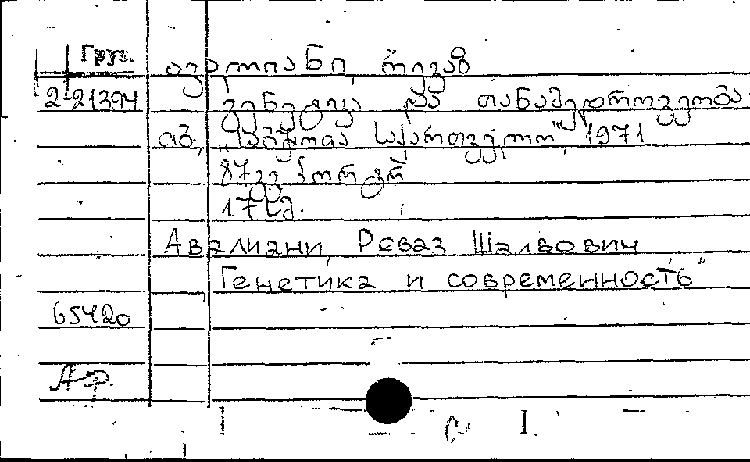 Груз.
ავალიანი, რევაზ
2-21394
გენეტიკა და თანამედროვეობა.
თბ., "საბჭოთა საქართველო", 1971
87 გვ. პორტრ.
17 სმ.
Авалиани, Реваз Шалвович
Генетика и современность"
65420
I.